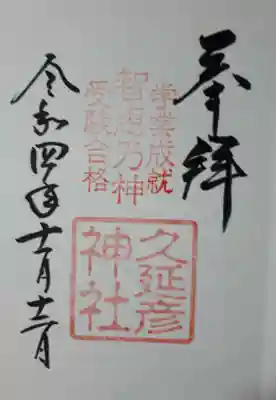 奉拝
学業成就
智恵乃神
受験合格
久延彦
神社
令和四年十一月十二日